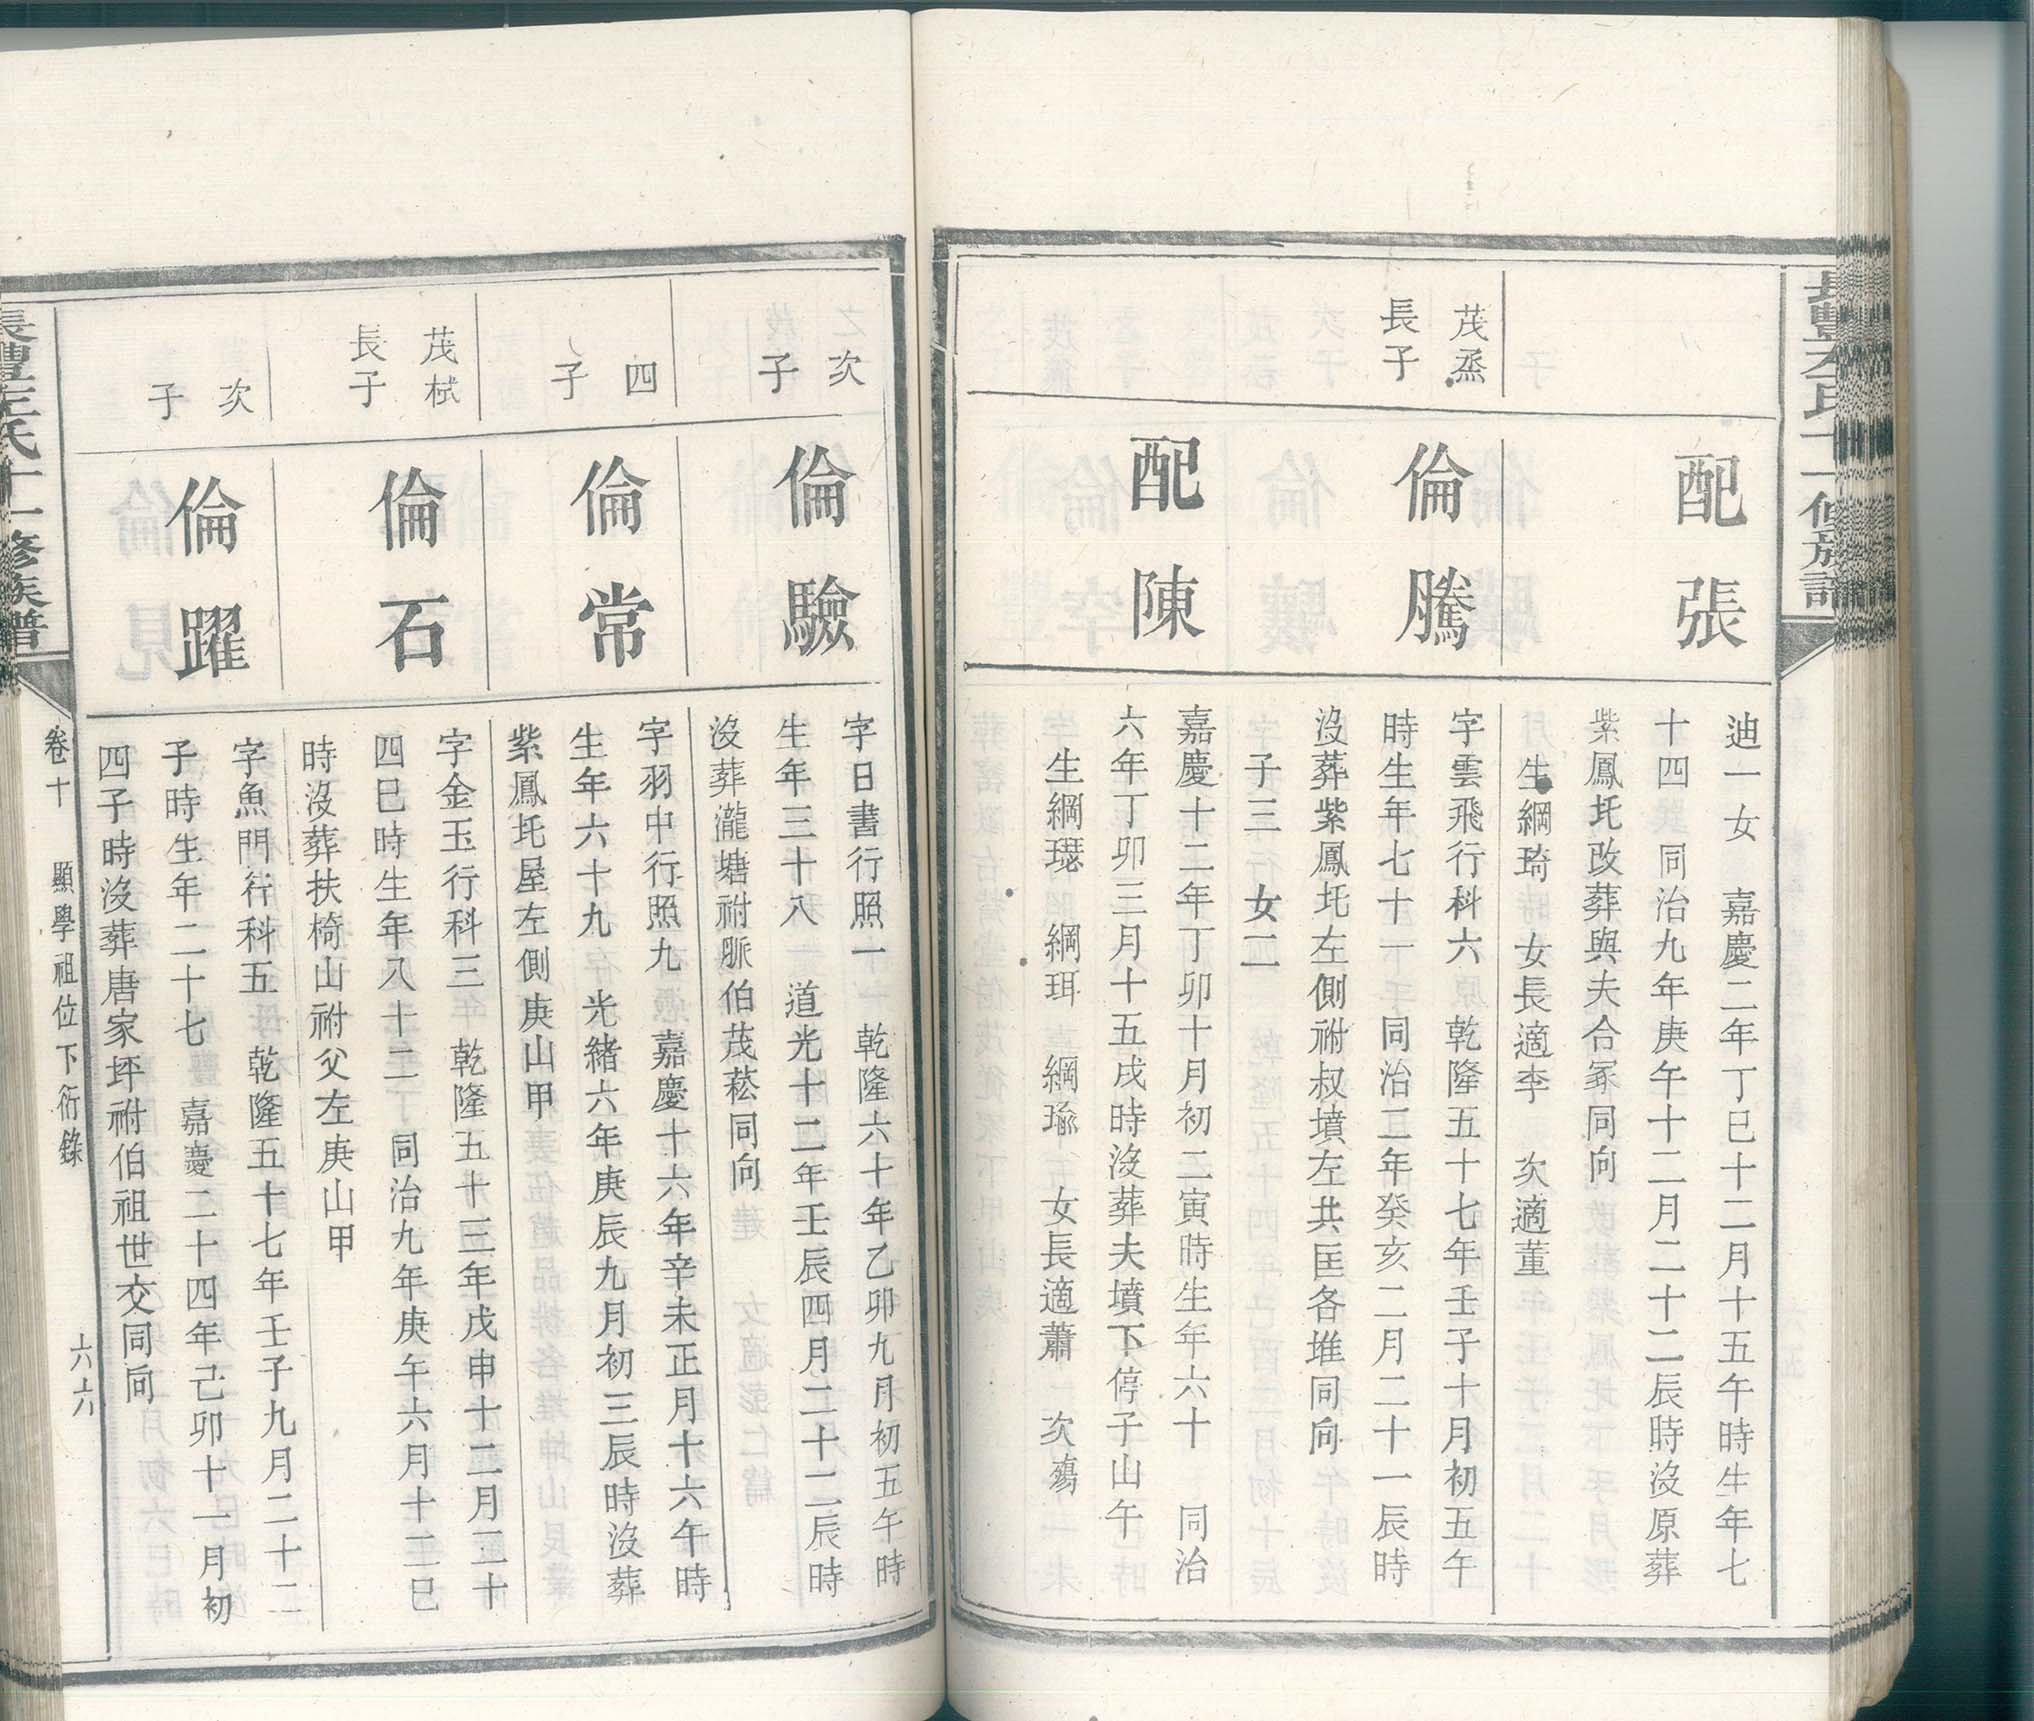 配張
迪一女　嘉慶二年丁巳十二月十五午時生年七
十四　同治九年庚午十二月二十二辰時沒原葬
紫鳳圫改葬與夫合冢同向
生綱琦　女長適李　次適董
茂烝
長子
倫騰
字雲飛行科六　乾隆五十七年壬子十月初五午
時生年七十一　同治二年癸亥二月二十一辰時
沒葬紫鳳圫左側祔叔墳左共匡各堆同向
子三　女二
配陳
嘉慶十二年丁卯十月初二寅時生年六十　同治
六年丁卯三月十五戌時沒葬夫墳下停子山午
生綱璱　綱珥　綱瑜　女長適蕭　次殤
次
子
倫驗
字日書行照一　乾隆六十年乙卯九月初五午時
生年三十八　道光十二年壬辰四月二十二辰時
沒葬瀧塘祔脈伯茂菘同向
四
子
倫常
字羽中行照九　嘉慶十六年辛未正月十六午時
生年六十九　光緒六年庚辰九月初三辰時沒葬
紫鳳圫屋左側庚山甲
茂栻
長子
倫石
字金玉行科三　乾隆五十三年戊申十二月二十
四巳時生年八十二　同治九年庚午六月十二巳
時沒葬扶椅山祔父左庚山甲
次
子
倫躍
字魚門行科五　乾隆五十七年壬子九月二十二
子時生年二十七　嘉慶二十四年己卯十一月初
四子時沒葬唐家坪祔伯祖世交同向
氏十一修族譜
卷十　顯學祖位下衍錄　六六